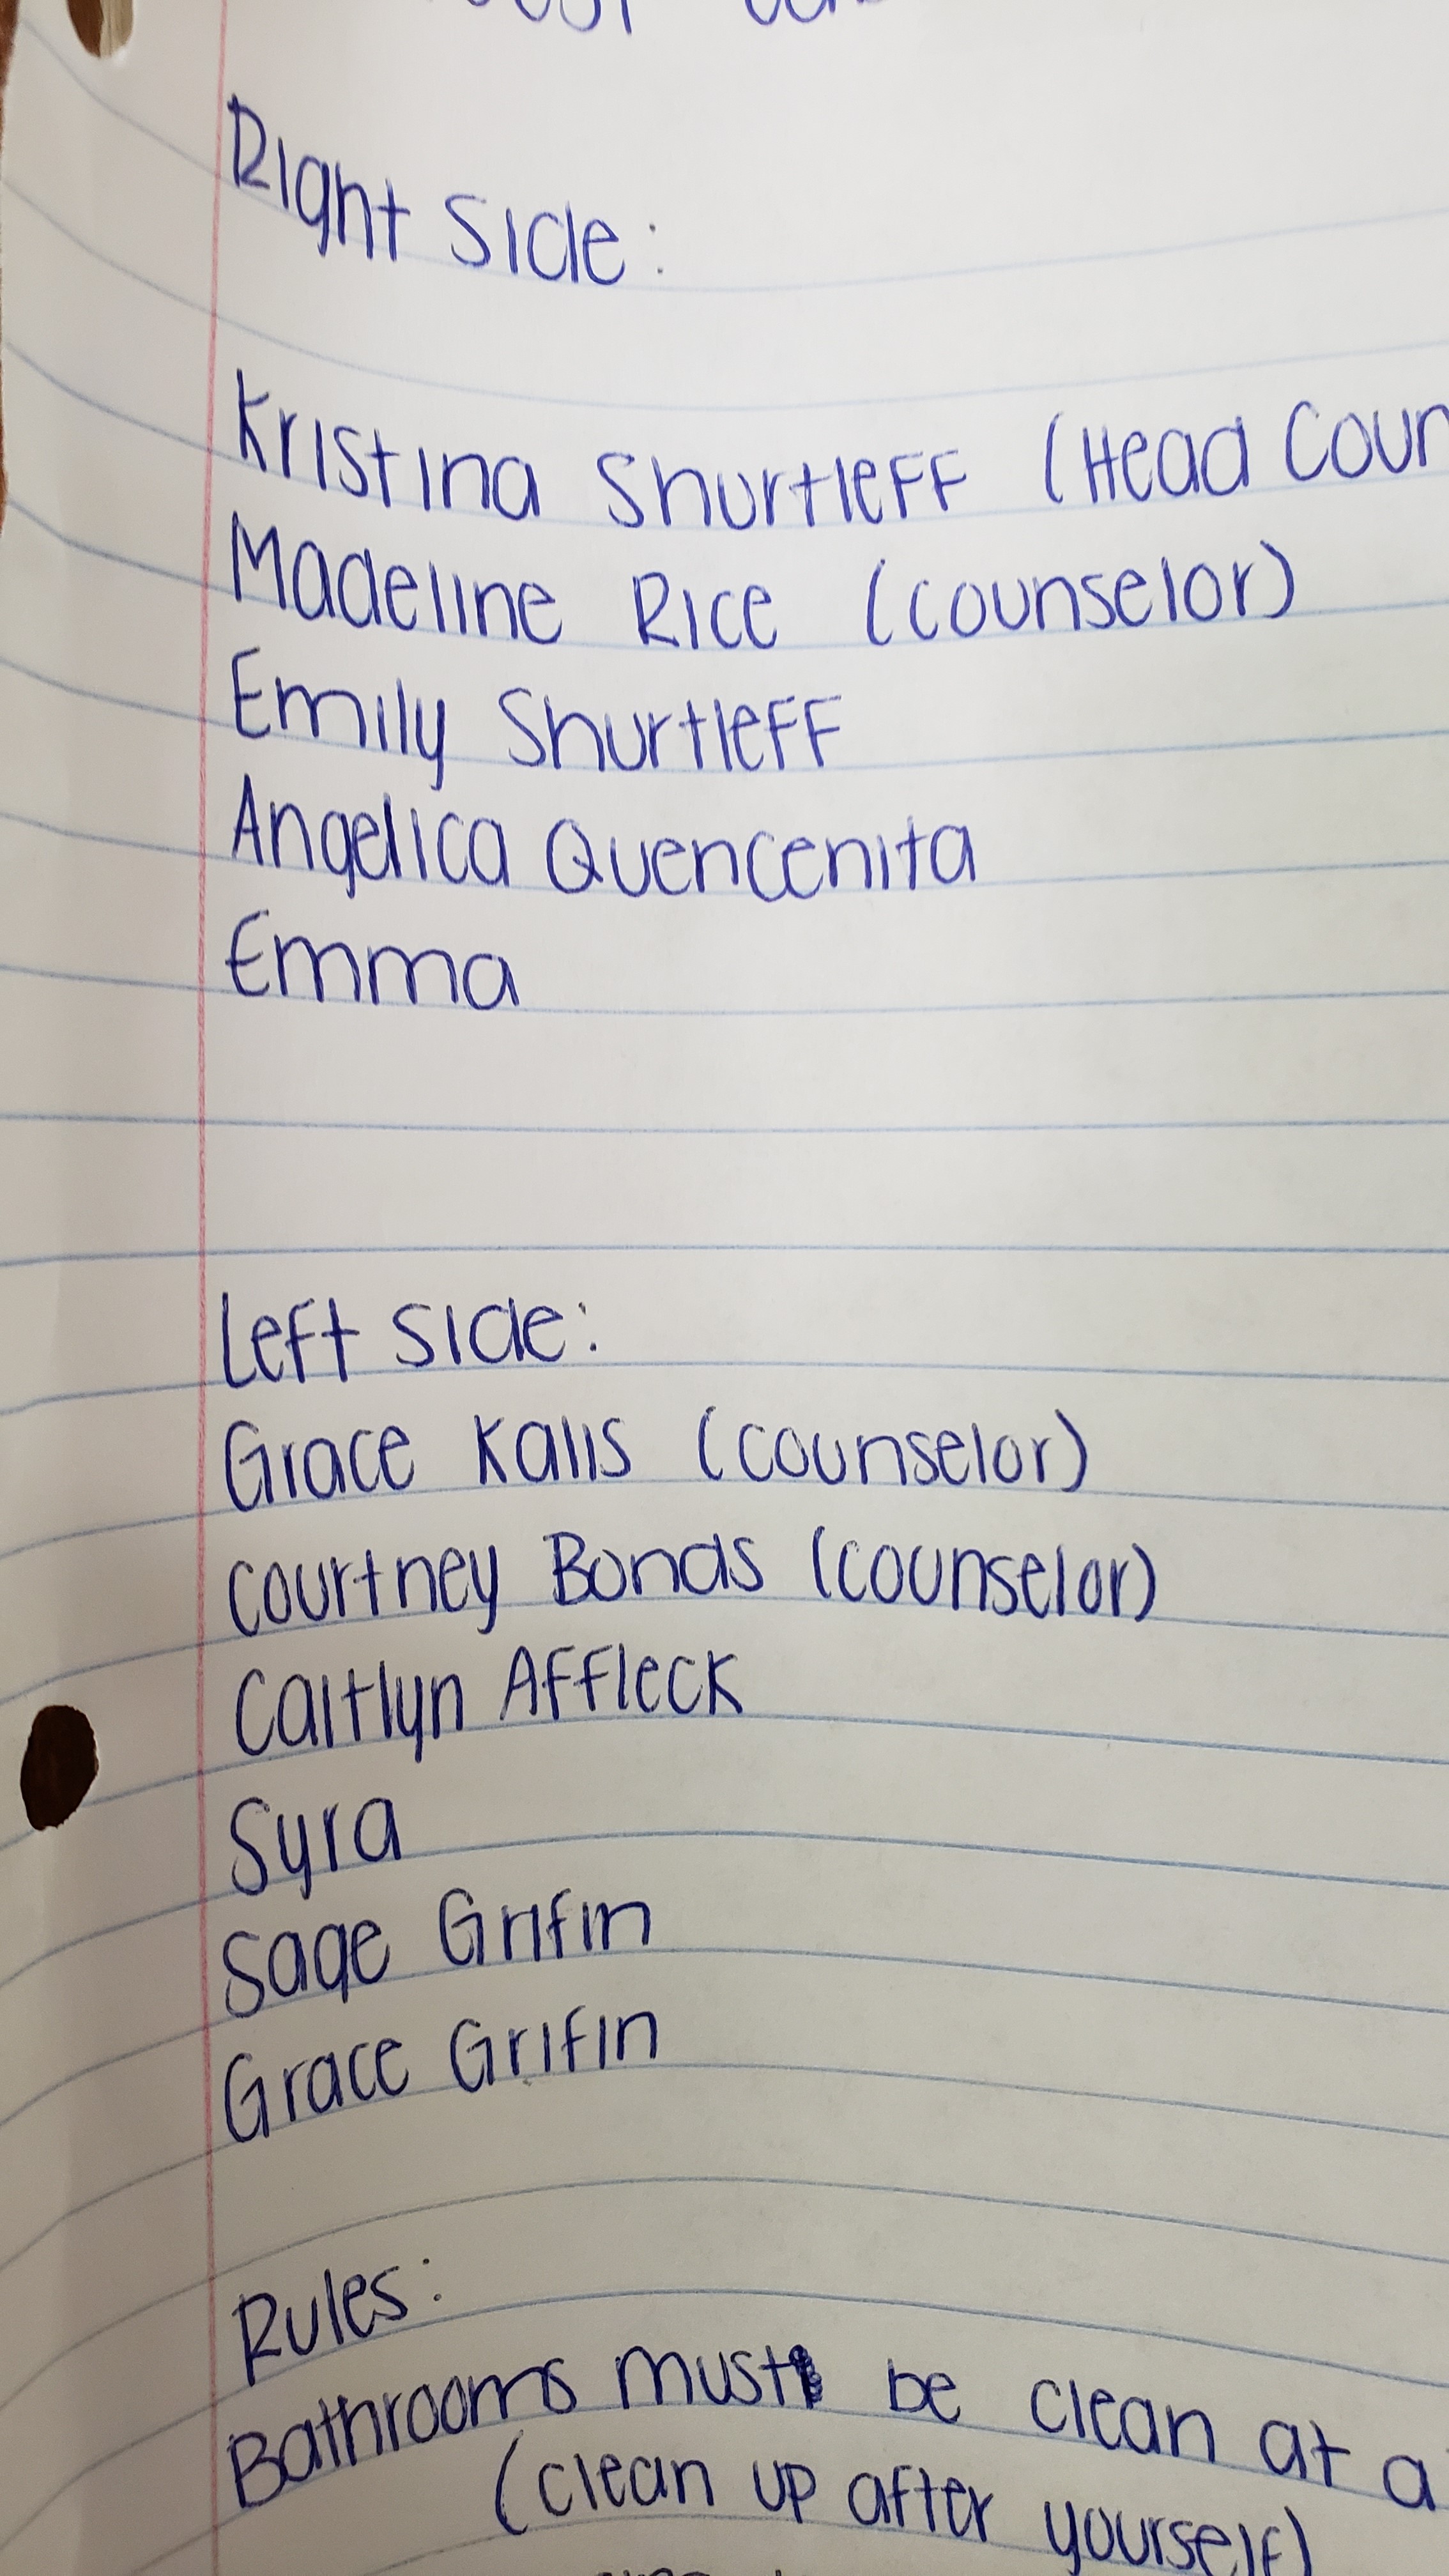 Right Side:
Kristina Shurtleff (Head Coun
Madeline Rice (counselor)
Emily Shurtleff
Angelica Quencenita
Emma
Left side:
Grace Kalis (counselor)
Courtney Bonds (counselor)
Caitlyn Affleck
Syra
Sage Grifin
Grace Grifin
Rules:
Bathrooms must be clean at a
(clean up after yourself)